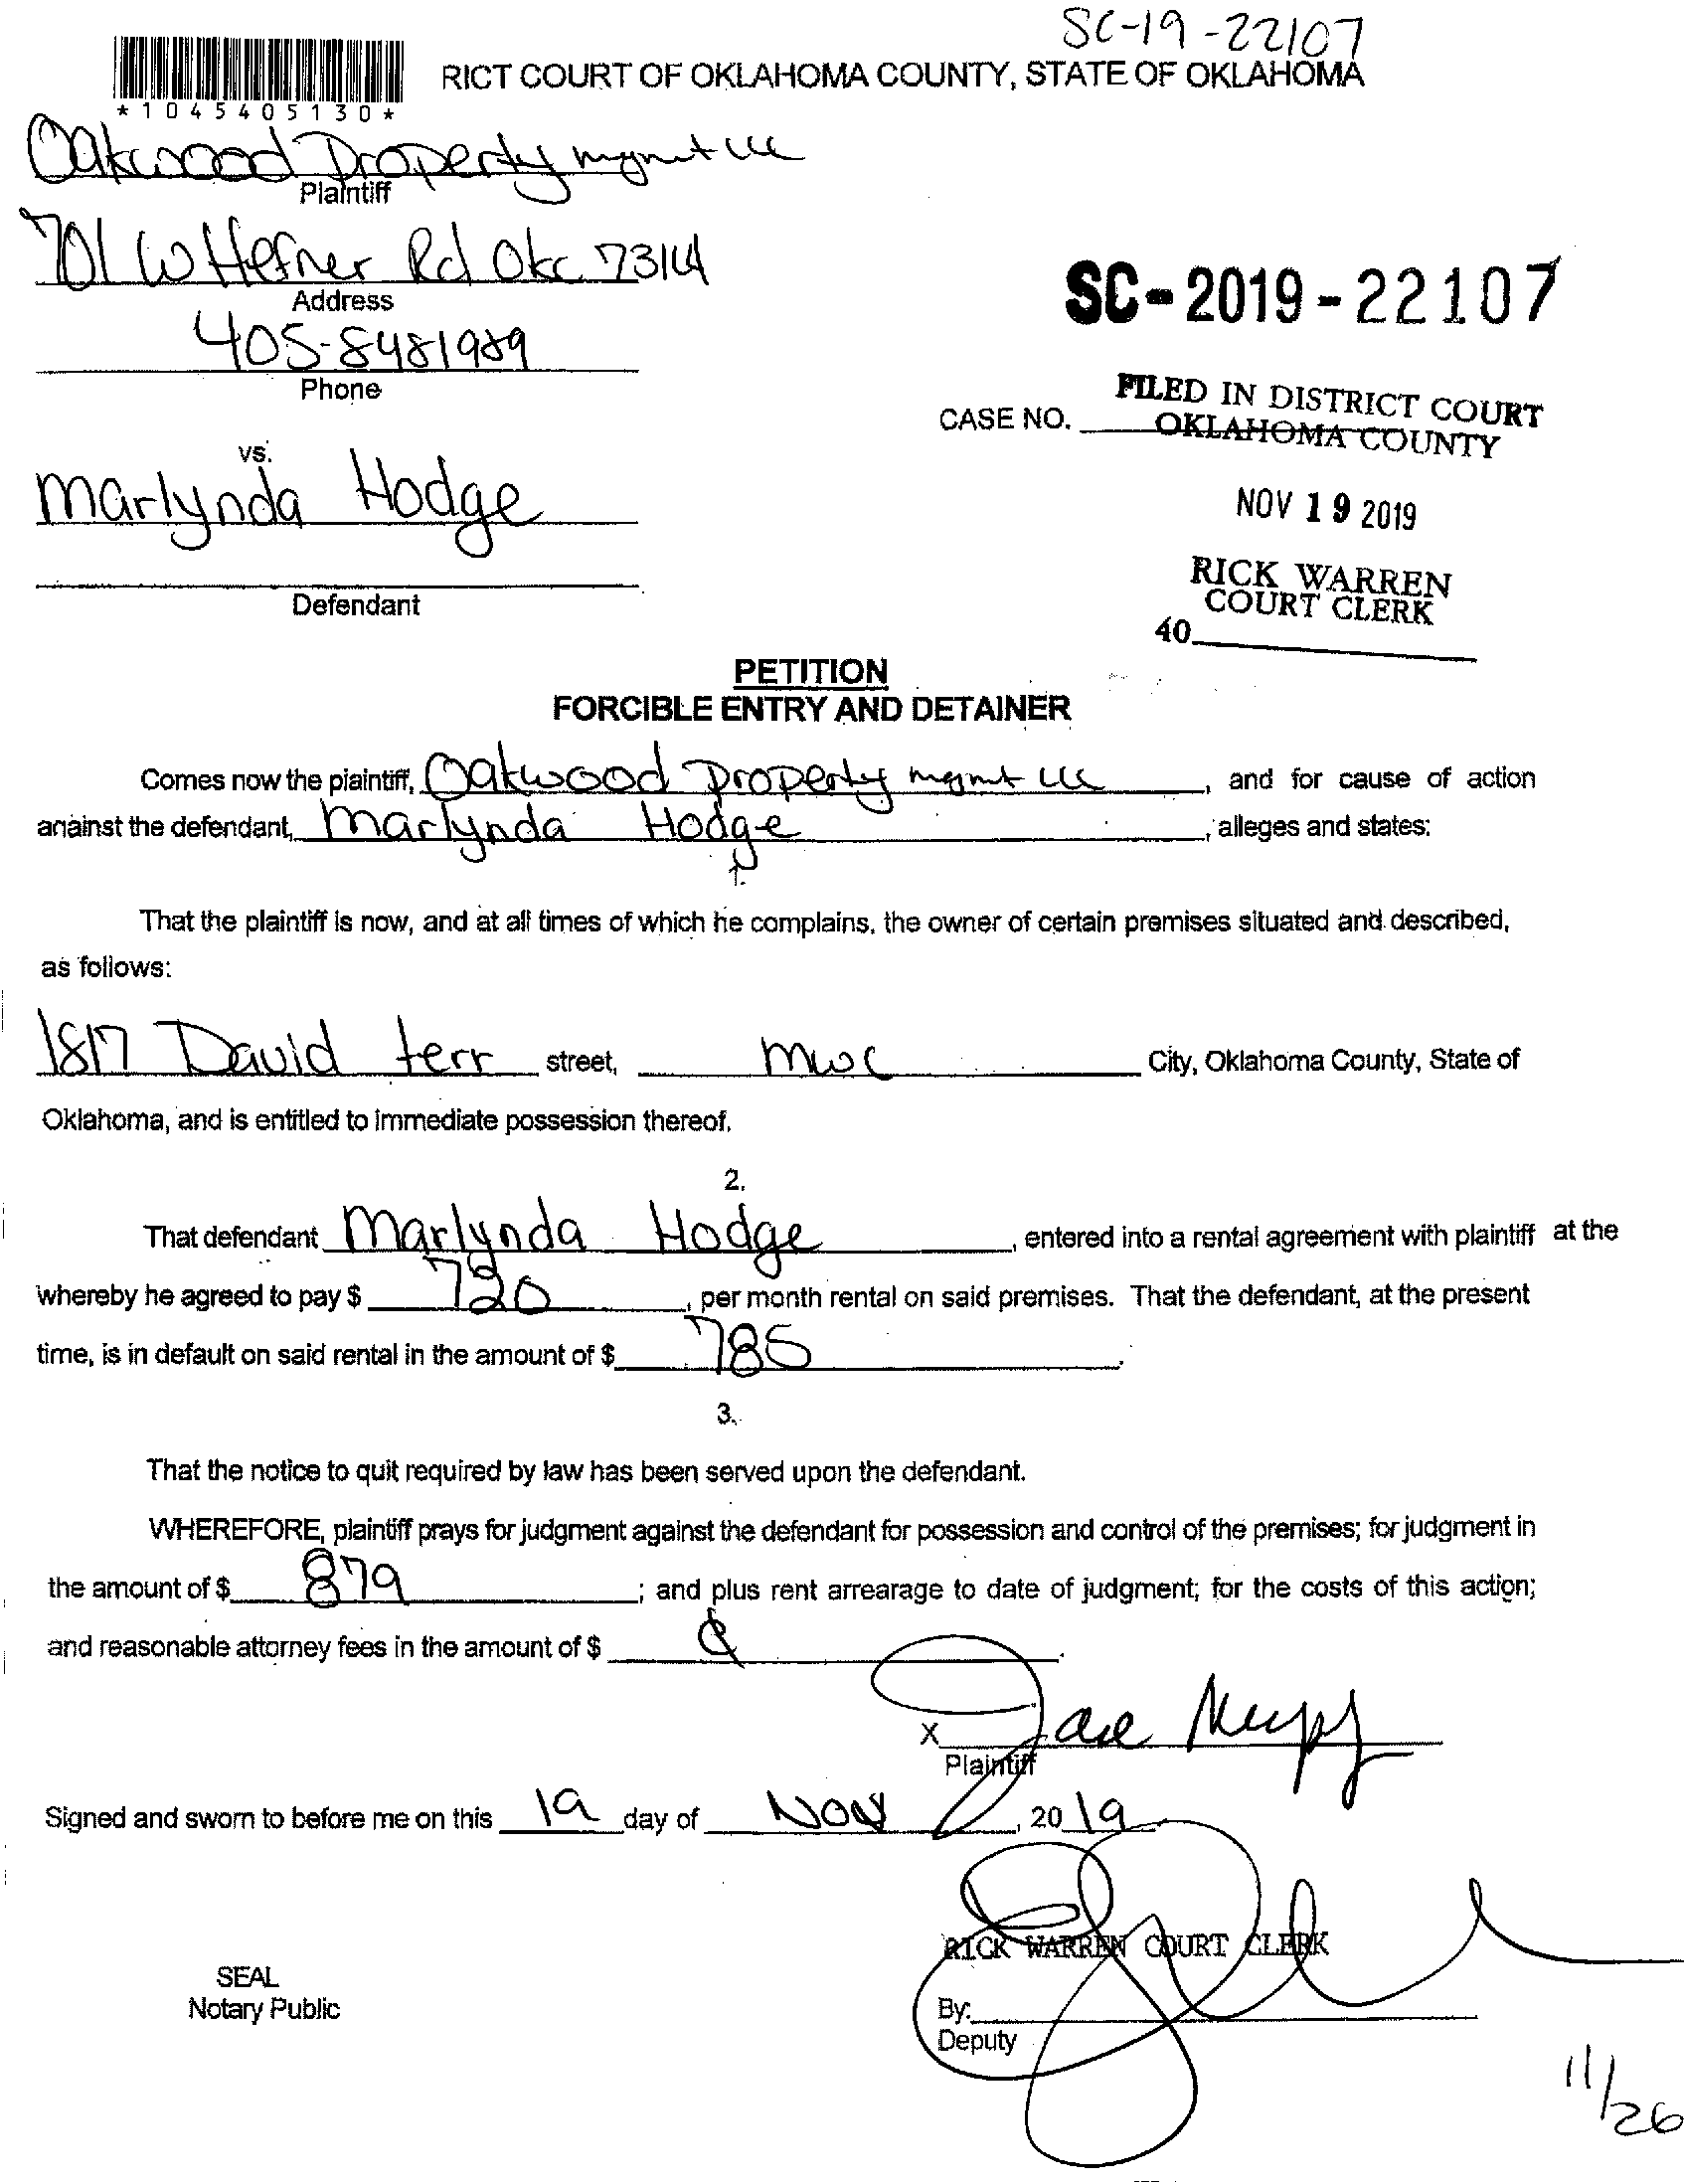 SC-19-22107
RICT COURT OF OKLAHOMA COUNTY, STATE OF OKLAHOMA
*1045405130*
Oakwood Property mgmt LLC
Plaintiff
701 W Hefner Rd Okc 73114
Address
SC-2019-22107
405-8481989
Phone
FILED IN DISTRICT COURT
CASE NO.
OKLAHOMA COUNTY
vs.
Marlynda Hodge
NOV 19 2019
RICK WARREN
COURT CLERK
Defendant
40
PETITION
FORCIBLE ENTRY AND DETAINER
Comes now the plaintiff, Oakwood Property mgmt LLC, and for cause of action
against the defendant, Marlynda Hodge, alleges and states:
1.
That the plaintiff is now, and at all times of which he complains, the owner of certain premises situated and described,
as follows:
1817 David terr street, mwc City, Oklahoma County, State of
Oklahoma, and is entitled to immediate possession thereof.
2.
That defendant Marlynda Hodge, entered into a rental agreement with plaintiff at the
whereby he agreed to pay $ 720, per month rental on said premises. That the defendant, at the present
time, is in default on said rental in the amount of $ 785.
3.
That the notice to quit required by law has been served upon the defendant.
WHEREFORE, plaintiff prays for judgment against the defendant for possession and control of the premises; for judgment in
the amount of $ 879; and plus rent arrearage to date of judgment; for the costs of this action;
and reasonable attorney fees in the amount of $
X
Plaintiff
Signed and sworn to before me on this 19 day of Nov, 2019
RICK WARREN COURT CLERK
SEAL
Notary Public
By:
Deputy
11/26